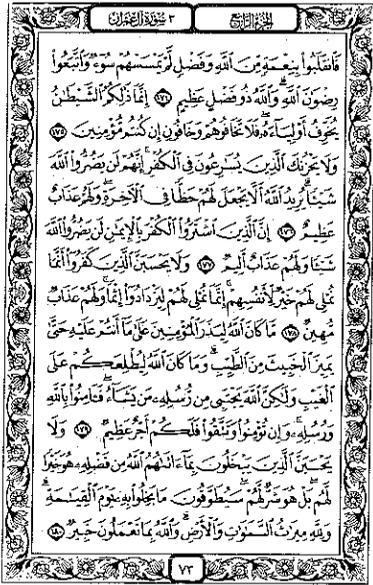 ٣ سُورَةُ آلِ عِمْرَانَ
الجُزءُ الرَّابِعُ
فَٱنقَلَبُوا۟ بِنِعْمَةٍ مِّنَ ٱللَّهِ وَفَضْلٍ لَّمْ يَمْسَسْهُمْ سُوٓءٌ وَٱتَّبَعُوا۟
رِضْوَٰنَ ٱللَّهِ ۗ وَٱللَّهُ ذُو فَضْلٍ عَظِيمٍ ﴿١٧٤﴾ إِنَّمَا ذَٰلِكُمُ ٱلشَّيْطَٰنُ
يُخَوِّفُ أَوْلِيَآءَهُۥ فَلَا تَخَافُوهُمْ وَخَافُونِ إِن كُنتُم مُّؤْمِنِينَ ﴿١٧٥﴾
وَلَا يَحْزُنكَ ٱلَّذِينَ يُسَٰرِعُونَ فِى ٱلْكُفْرِ ۚ إِنَّهُمْ لَن يَضُرُّوا۟ ٱللَّهَ
شَيْـًٔا ۗ يُرِيدُ ٱللَّهُ أَلَّا يَجْعَلَ لَهُمْ حَظًّا فِى ٱلْـَٔاخِرَةِ ۖ وَلَهُمْ عَذَابٌ
عَظِيمٌ ﴿١٧٦﴾ إِنَّ ٱلَّذِينَ ٱشْتَرَوُا۟ ٱلْكُفْرَ بِٱلْإِيمَٰنِ لَن يَضُرُّوا۟ ٱللَّهَ
شَيْـًٔا وَلَهُمْ عَذَابٌ أَلِيمٌ ﴿١٧٧﴾ وَلَا يَحْسَبَنَّ ٱلَّذِينَ كَفَرُوٓا۟ أَنَّمَا
نُمْلِى لَهُمْ خَيْرٌ لِّأَنفُسِهِمْ ۚ إِنَّمَا نُمْلِى لَهُمْ لِيَزْدَادُوٓا۟ إِثْمًا ۚ وَلَهُمْ عَذَابٌ
مُّهِينٌ ﴿١٧٨﴾ مَّا كَانَ ٱللَّهُ لِيَذَرَ ٱلْمُؤْمِنِينَ عَلَىٰ مَآ أَنتُمْ عَلَيْهِ حَتَّىٰ
يَمِيزَ ٱلْخَبِيثَ مِنَ ٱلطَّيِّبِ ۗ وَمَا كَانَ ٱللَّهُ لِيُطْلِعَكُمْ عَلَى
ٱلْغَيْبِ وَلَٰكِنَّ ٱللَّهَ يَجْتَبِى مِن رُّسُلِهِۦ مَن يَشَآءُ ۖ فَـَٔامِنُوا۟ بِٱللَّهِ
وَرُسُلِهِۦ ۚ وَإِن تُؤْمِنُوا۟ وَتَتَّقُوا۟ فَلَكُمْ أَجْرٌ عَظِيمٌ ﴿١٧٩﴾ وَلَا
يَحْسَبَنَّ ٱلَّذِينَ يَبْخَلُونَ بِمَآ ءَاتَىٰهُمُ ٱللَّهُ مِن فَضْلِهِۦ هُوَ خَيْرًا
لَّهُم ۖ بَلْ هُوَ شَرٌّ لَّهُمْ ۖ سَيُطَوَّقُونَ مَا بَخِلُوا۟ بِهِۦ يَوْمَ ٱلْقِيَٰمَةِ ۗ
وَلِلَّهِ مِيرَٰثُ ٱلسَّمَٰوَٰتِ وَٱلْأَرْضِ ۗ وَٱللَّهُ بِمَا تَعْمَلُونَ خَبِيرٌ ﴿١٨٠﴾
٧٣